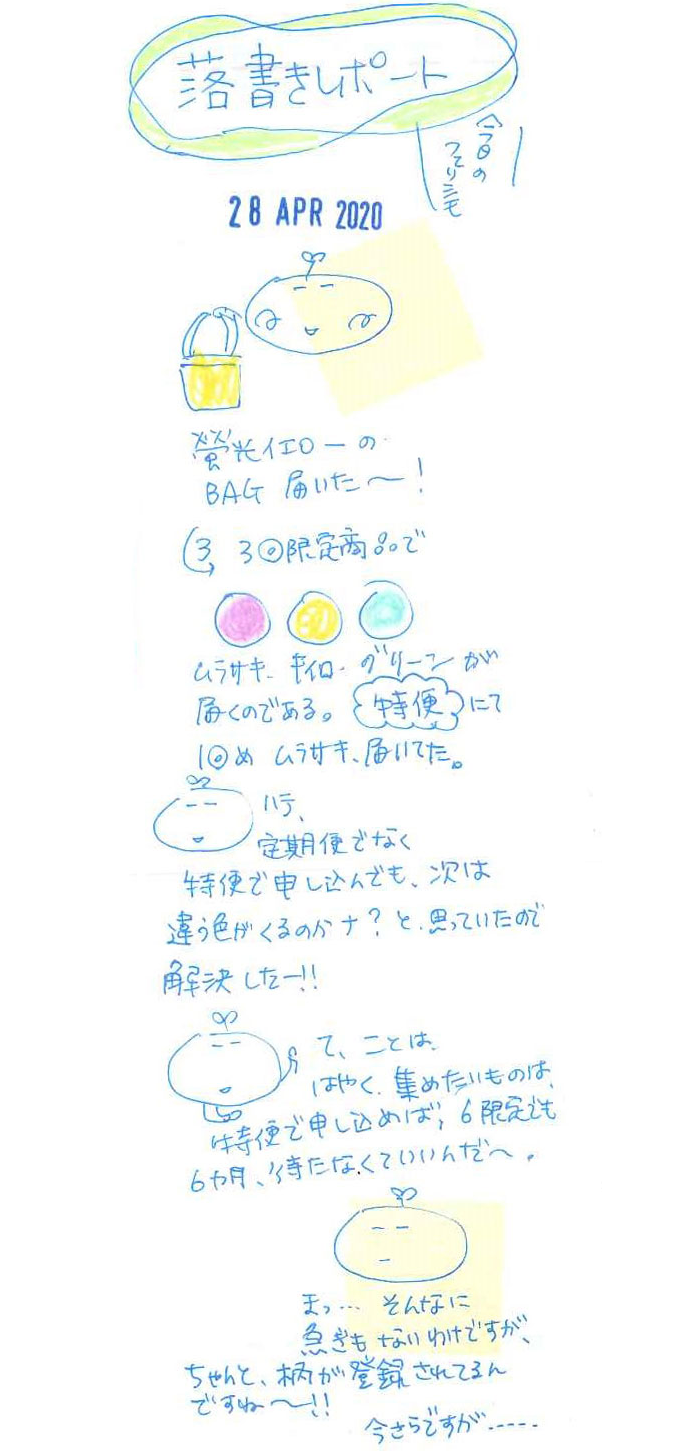 落書きレポート
今日の
つてりミモ
28 APR 2020
螢光イエローの
BAG 届いた〜!
3回限定商品で
ムラサキ、キイロ、グリーンが
届くのである。特便にて
1回め ムラサキ、届いてた。
ハテ、
定期便でなく
特便で申し込んでも、次は
違う色がくるのかナ?と、思っていたので
解決したー!!
て、ことは、
はやく、集めたいものは、
特便で申し込めば、6限定でも
6カ月、待たなくていいんだ〜。
まっ… そんなに
急ぎもないわけですが、
ちゃんと、柄が登録されてるん
ですね〜!!
今さらですが……